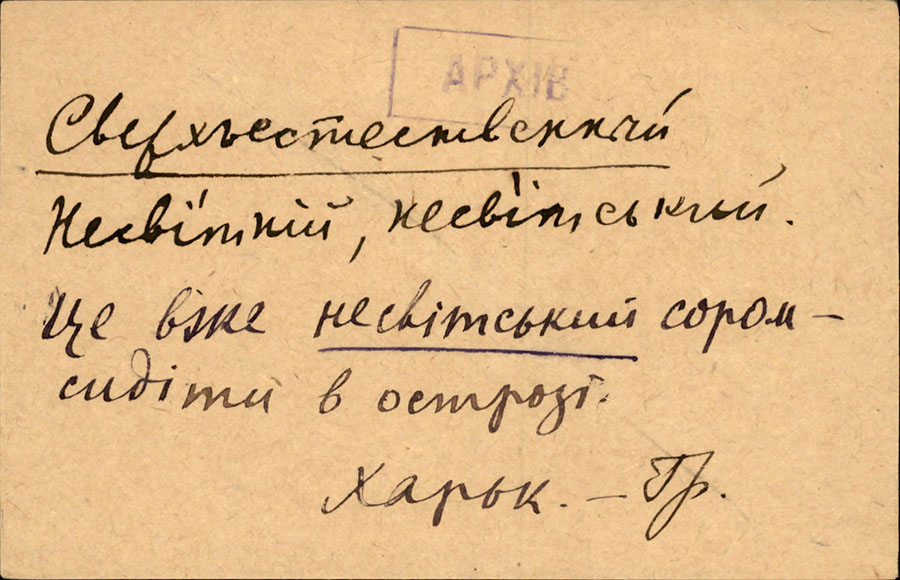 АРХІВ
Сверхъестественный
Несві́тній, несві́тський.
Це вже несвітський сором –
сидіти в острозі.
Харьк. – Гр.